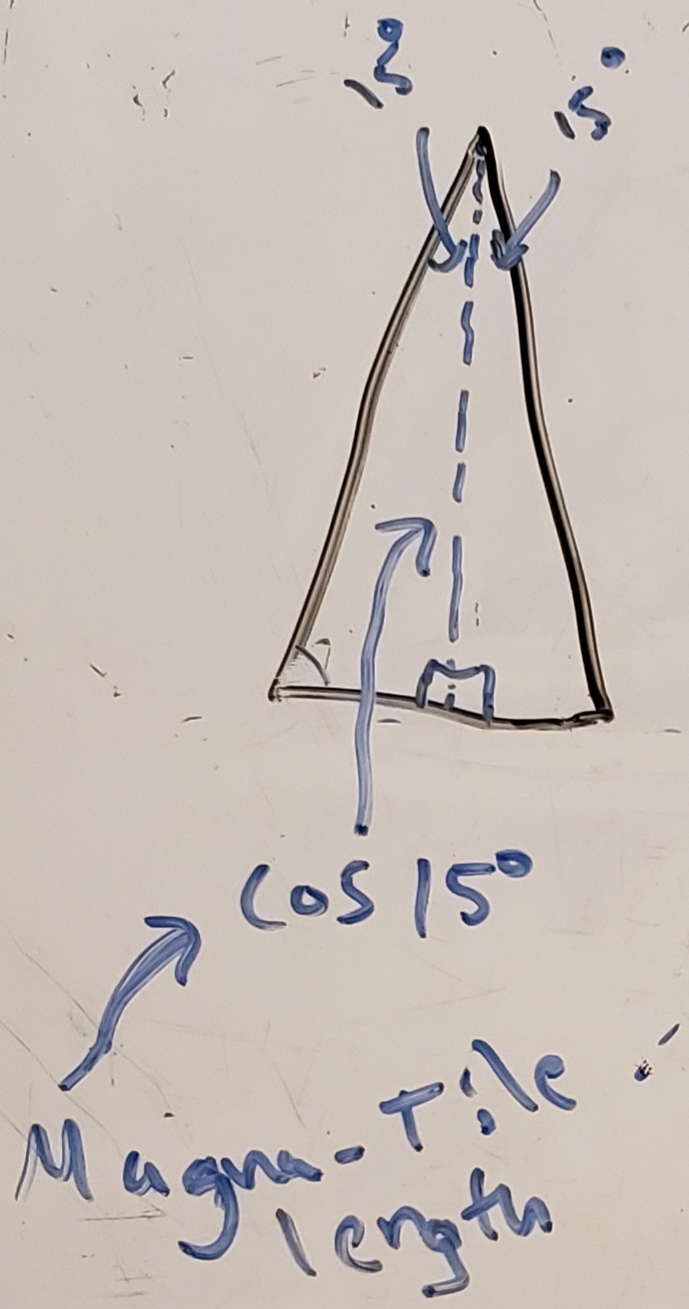 15° 15°
cos 15°
Magna-Tile
length